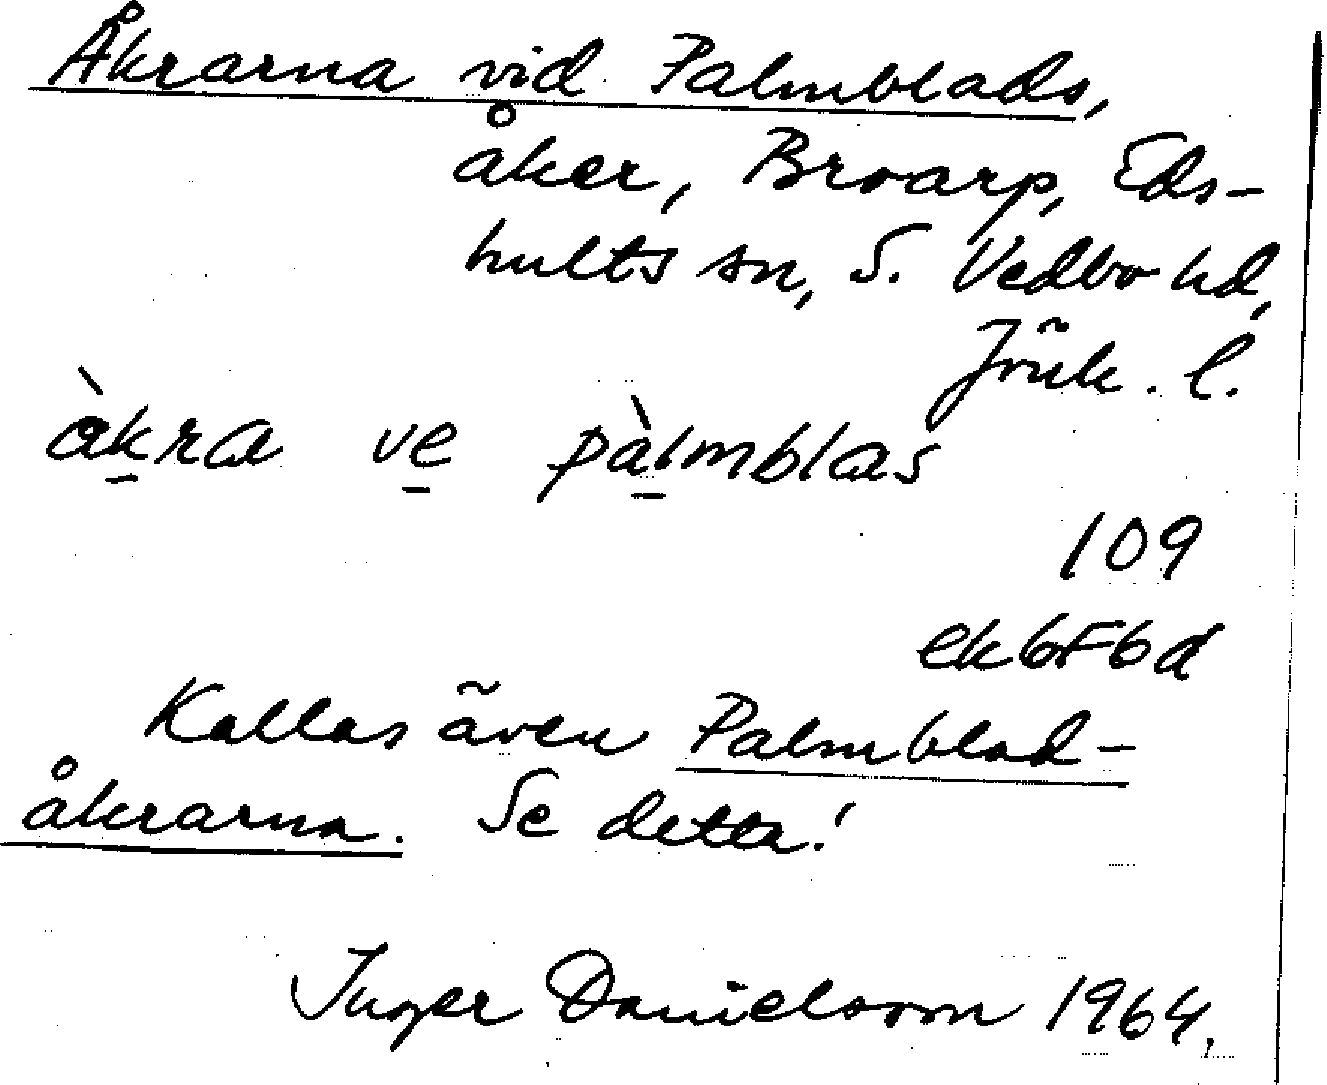 Åkrarna vid Palmblads,
åker, Broarp, Eds-
hults sn, S. Vedbo hd,
Jönk. l.
àkra ve pàlmblas
109
ek6F6d
Kallas även Palmblad-
åkrarna. Se detta!
Inger Danielsson 1964.